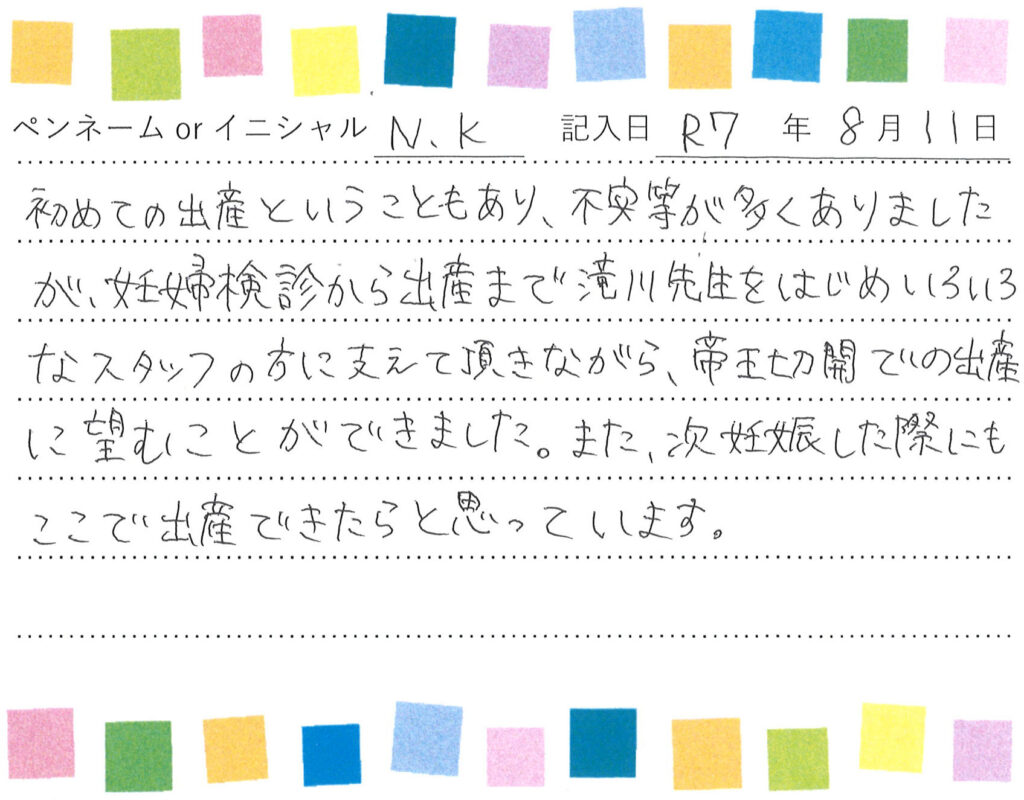 ペンネーム or イニシャル N.K 記入日 R7 年 8月11日
初めての出産ということもあり、不安等が多くありました
が、妊婦検診から出産まで滝川先生をはじめいろいろ
なスタッフの方に支えて頂きながら、帝王切開での出産
に望むことができました。また、次妊娠した際にも
ここで出産できたらと思っています。